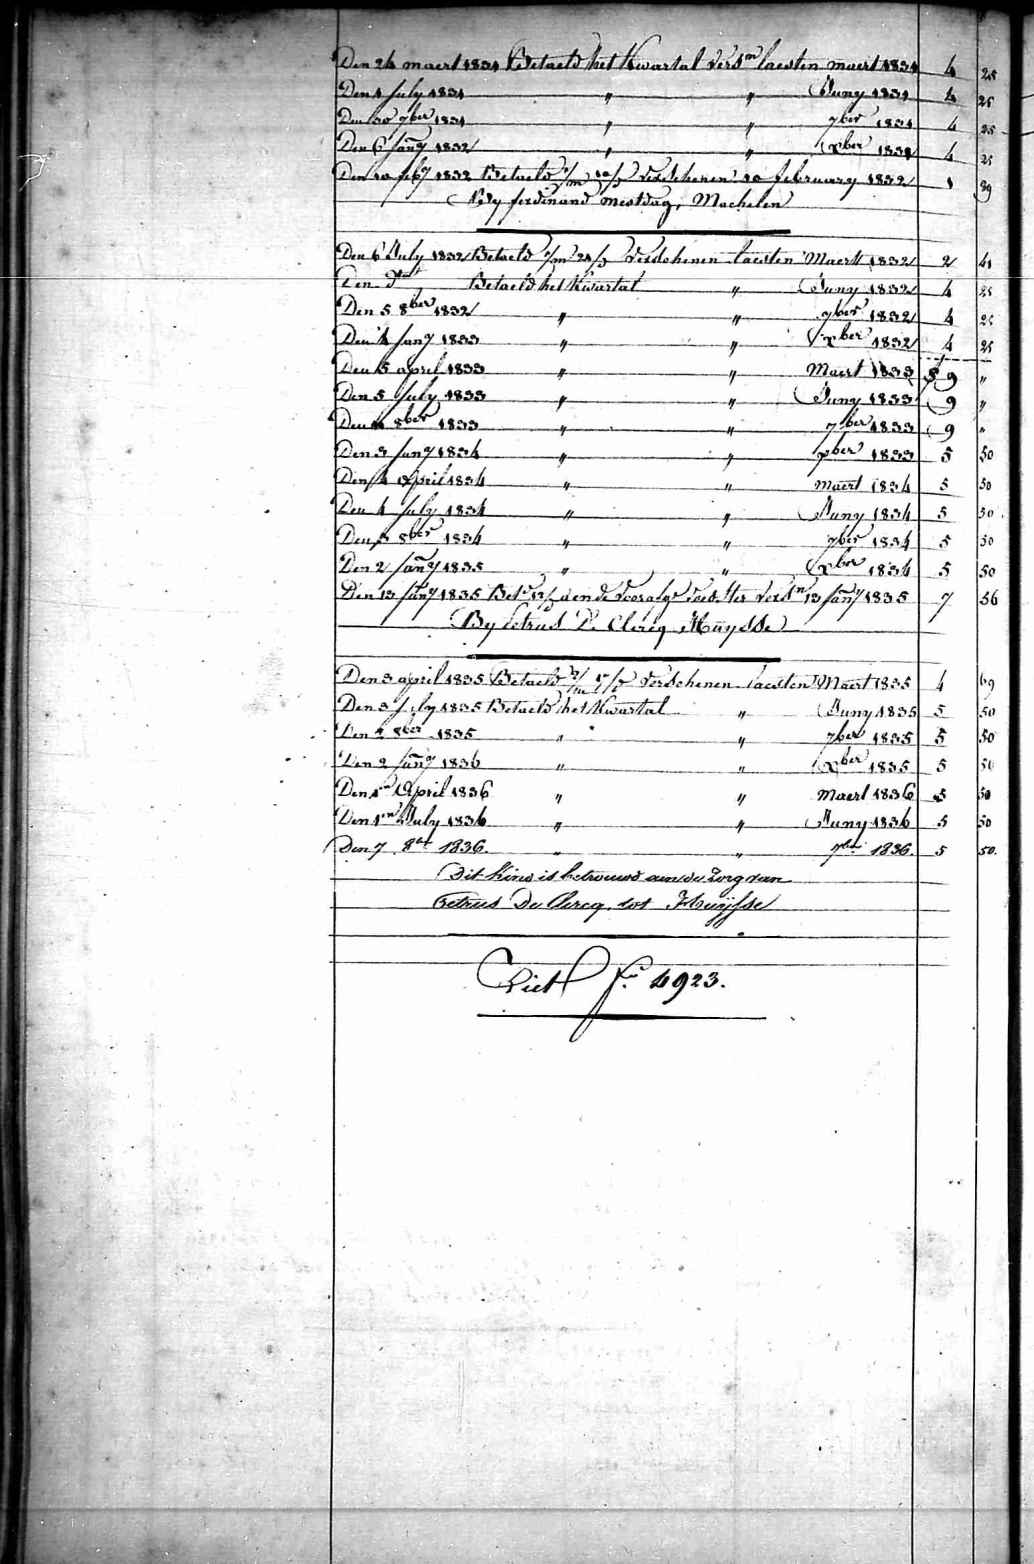 Den 24 maert 1831 Betaeld het Kwartal Versn laesten maert 1831 4 25
Den 1 July 1831 " " Juny 1831 4 25
Den 30 7ber 1831 " " 7ber 1831 4 25
Den 6 Jany 1832 " " xber 1831 4 25
Den 10 feby 1832 Betaeld 1/m 10/d verschenen 10 february 1832 1 89
By ferdinand mestdag, Machelen
Den 6 July 1832 Betaeld /m 21/d verschenen laesten Maert 1832 2 41
Den dto Betaeld het Kwartal " Juny 1832 4 25
Den 5 8ber 1832 " " 7ber 1832 4 25
Den 4 Jany 1833 " " xber 1832 4 25
Den 5 april 1833 " " Maert 1833 9 "
Den 5 July 1833 " " Juny 1833 9 "
Den 8ber 1833 " " 7ber 1833 9 "
Den 3 Jany 1834 " " xber 1833 5 50
Den 4 april 1834 " " maert 1834 5 50
Den 4 July 1834 " " Juny 1834 5 50
Den 3 8ber 1834 " " 7ber 1834 5 50
Den 2 Jany 1835 " " xber 1834 5 50
Den 13 Jany 1835 Bet 13/d en de Versn 13 Jany 1835 7 56
By Petrus De Clercq Huysse
Den 3 april 1835 Betaeld 2/m 17/d Verschenen laesten Maert 1835 4 69
Den 3 July 1835 Betaeld het Kwartal " Juny 1835 5 50
Den 2 8ber 1835 " " 7ber 1835 5 50
Den 2 Jany 1836 " " xber 1835 5 50
Den 1n April 1836 " " Maert 1836 5 50
Den 1en July 1836 " " Juny 1836 5 50
Den 7 8ber 1836. " " 7ber 1836. 5 50.
Dit kind is betrouwd aen de zorg van
Petrus De Clercq, tot Huysse
Ziet fo 4923.